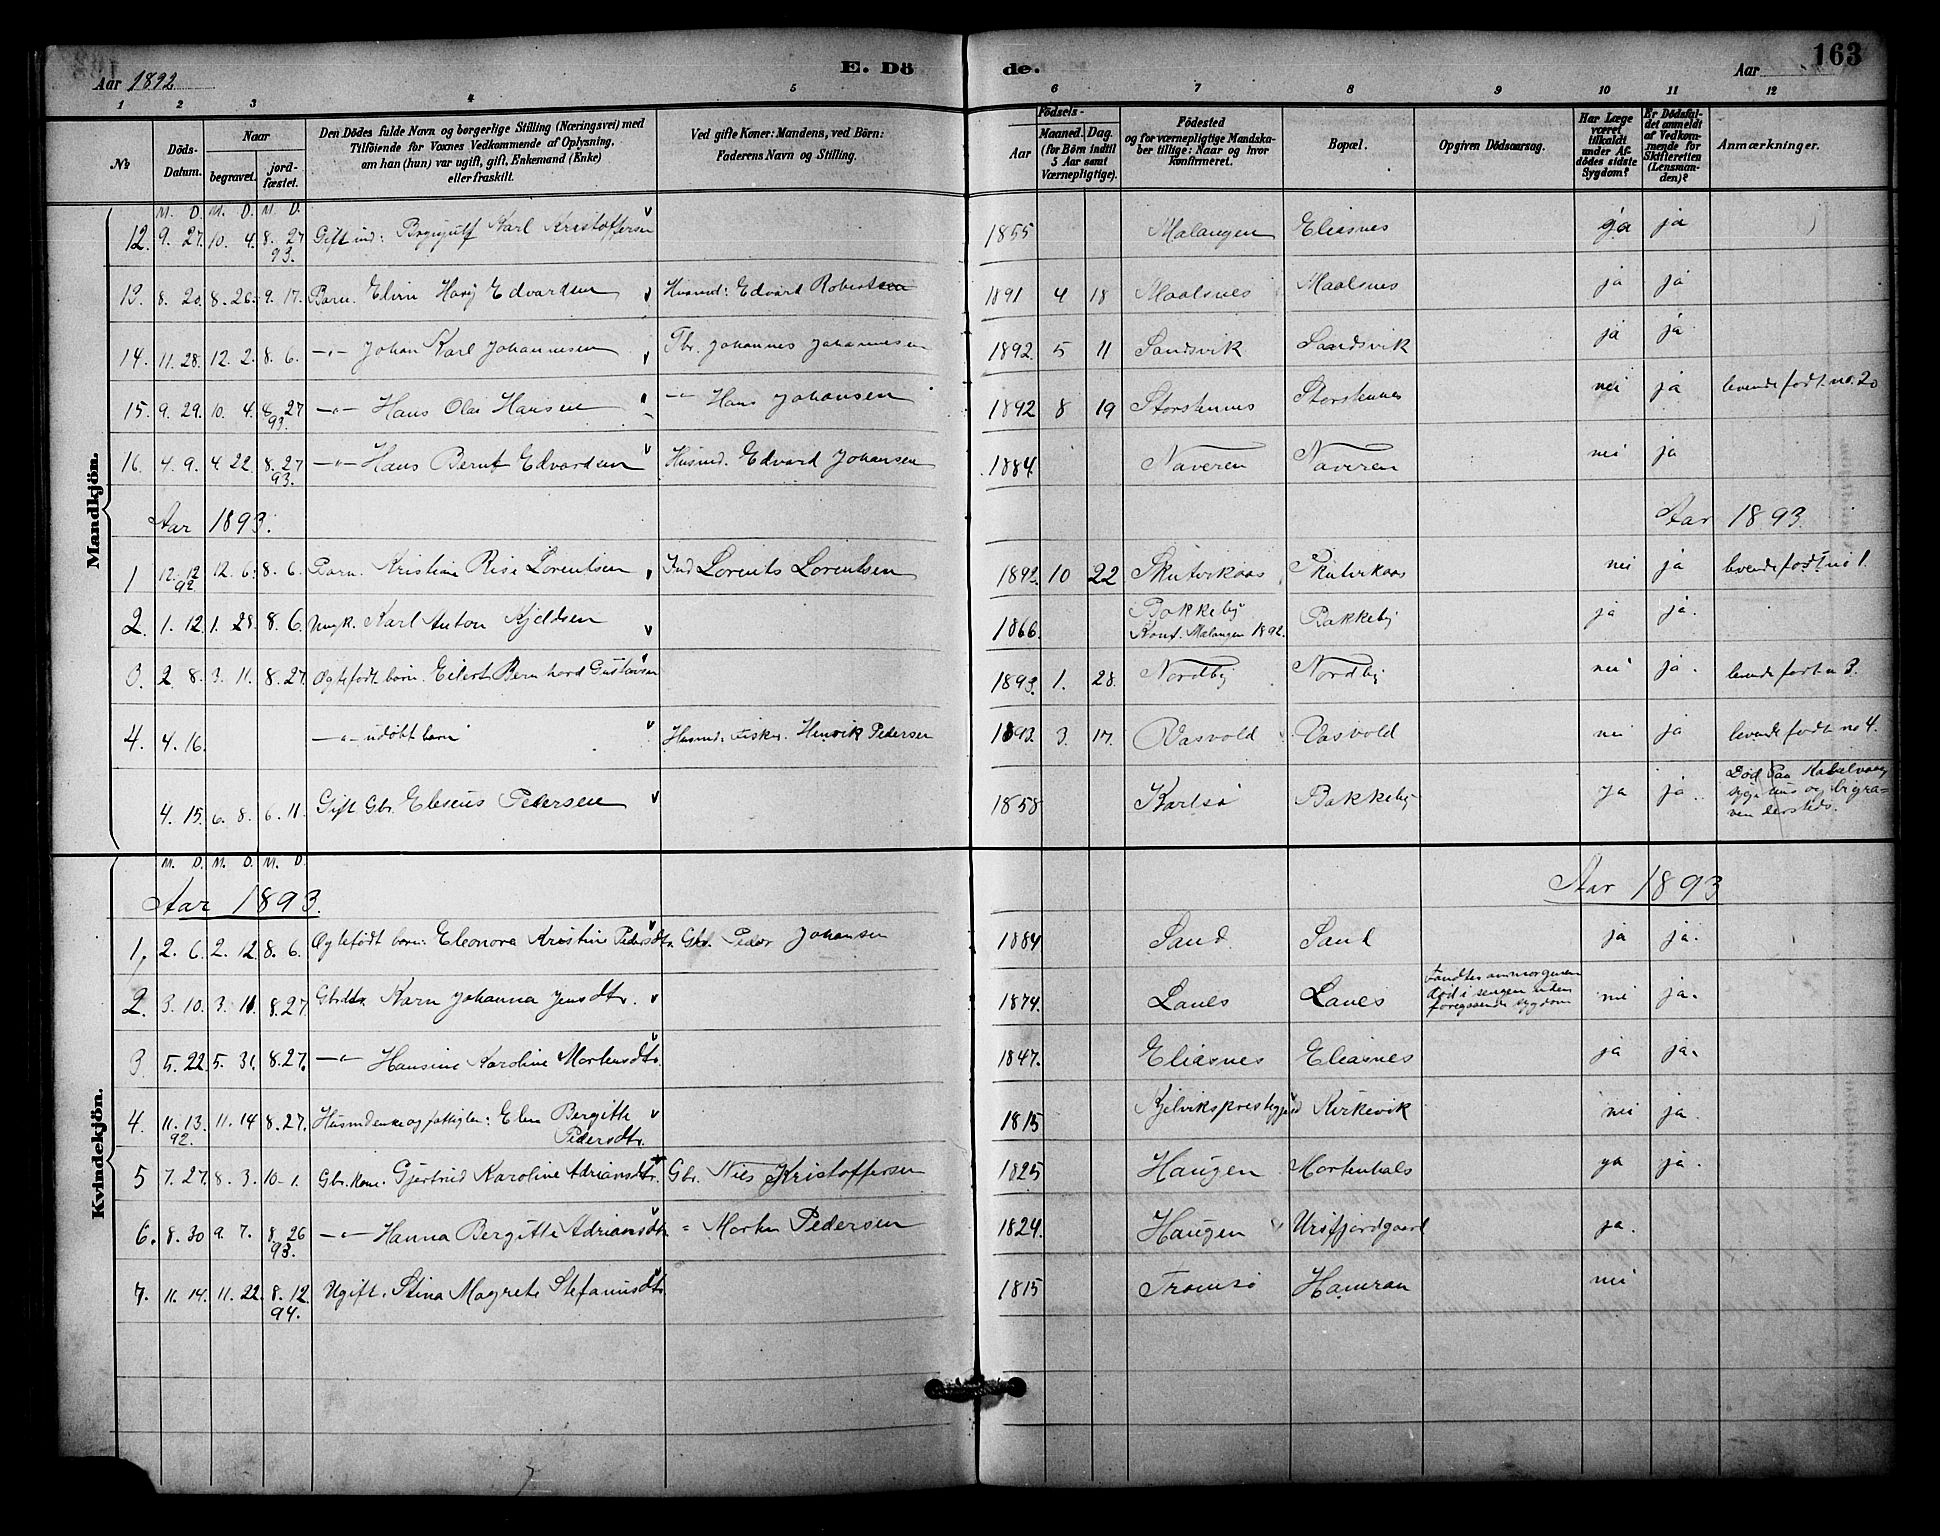 163
Aar 1892
E. Dö de.
Aar
1 2 3 4 5 6 7 8 9 10 11 12
No
Döds-Datum.
Naar
begravet.
jord-fæstet.
Den Dödes fulde Navn og borgerlige Stilling (Næringsvei) med
Tilföiende for Voxnes Vedkommende af Oplysning,
om han (hun) var ugift, gift, Enkemand (Enke)
eller fraskilt.
Ved gifte Koner: Mandens, ved Börn:
Faderens Navn og Stilling.
Födsels-
Aar
Maaned. Dag.
(for Börn indtil
5 Aar samt
Værnepligtige).
Födested
og for værnepligtige Mandska-
ber tillige: Naar og hvor
konfirmeret.
Bopæl.
Opgiven Dödsaarsag.
Har Læge
været
tilkaldt
under Af-
dödes sidste
Sygdom?
Er Dödsfal-
det anmeldt
af Vedkom-
mende for
Skifteretten
(Lensman-
den)?
Anmærkninger.
Mandkjön.
M. D. M. D. M. D.
12. 9. 27. 10. 4. 8. 27 93. Gift ind: Karl Kristoffersen 1855 Malangen Eliasnes ja ja
13. 8. 20. 8. 26. 9. 17. Barn. Elvin Edvardsen Husmd: Edvard Robertsen 1891 4 18 Maalsnes Maalsnes ja ja
14. 11. 28. 12. 2. 8. 6. —"— Johan Karl Johannesen Johannes Johannesen 1892. 5 11 Sandsvik Sandsvik ja ja
15. 9. 29. 10. 4. 8. 27 93. —"— Hans Olai Hansen —"— Hans Johansen 1892 8 19 nei ja levende födt no. 20
16. 4. 9. 4. 22. 8. 27 93. —"— Hans Bernt Edvardsen Husmd. Edvard Johansen 1884. Naveren Naveren nei ja
Aar 1893. Aar 1893.
1 12. 12 92. 12. 6. 8. 6. Barn. Kristine Lorentsen Ind Lorents Lorentsen 1892. 10 22 Skutvikaas Skutvikaas nei ja levende födt no 1.
2. 1. 12. 1. 28. 8. 6. Ungk. Karl Anton Kjeldsen 1866. Bakkeby Konf. Malangen 1892. Bakkeby ja ja.
3. 2. 8. 3. 11. 8. 27. Ægtefödt barn. Eilert Bernhard Gustavsen 1893. 1. 28. Nordby Nordby nei ja. levende födt n 3.
4. 4. 16. —"— udöbt barn Husmd. Fisker. Henrik Pedersen 1893. 3. 17. Vasvold Vasvold nei ja levende födt no 4.
4. 15. 6. 8. 6. 11. Gift Gbr. Eliseus Pedersen 1858 Karlsö Bakkeby ja ja. Död paa Kabelvaag sygehus og begra-ven dersteds.
Kvindekjön.
M. D. M. D. M. D.
Aar 1893. Aar 1893
1. 2. 6. 2. 12. 8. 6. Ægtefödt barn: Eleonora Kristine Pedersdtr. Gbr. Peder Johansen 1884 Sand Sand ja ja.
2. 3. 10. 3. 11. 8. 27. Gbrdtr. Karn Johanna Jensdtr. 1874. Lanes Lanes Fandtes om morgenen död i sengen uden foregaaende sygdom nei ja.
3. 5. 22. 5. 31. 8. 27. —"— Hansine Karoline Mortensdtr. 1847. Eliasnes Eliasnes ja ja.
4. 11. 13. 92. 11. 14 8. 27. Husmdenke og fattiglem: Elen Bergitte Pedersdtr. 1815 Kjelviksprestegjeld Kirkevik nei ja.
5 7. 27. 8. 3. 10. 1. Gbr. kone. Gjertrud Karoline Adriansdtr. Gbr. Nils Kristoffersen 1825 Haugen Mortenhals ja ja.
6. 8. 30 9. 7. 8. 26 93. —"— Hanna Bergitte Adriansdtr. " Morten Pedersen 1824. Haugen Ursfjordgaard ja.
7. 11. 14. 11. 22. 8. 12. 94. Ugift. Stina Magrete Stefanusdtr. 1815 Tromsö Hamran nei